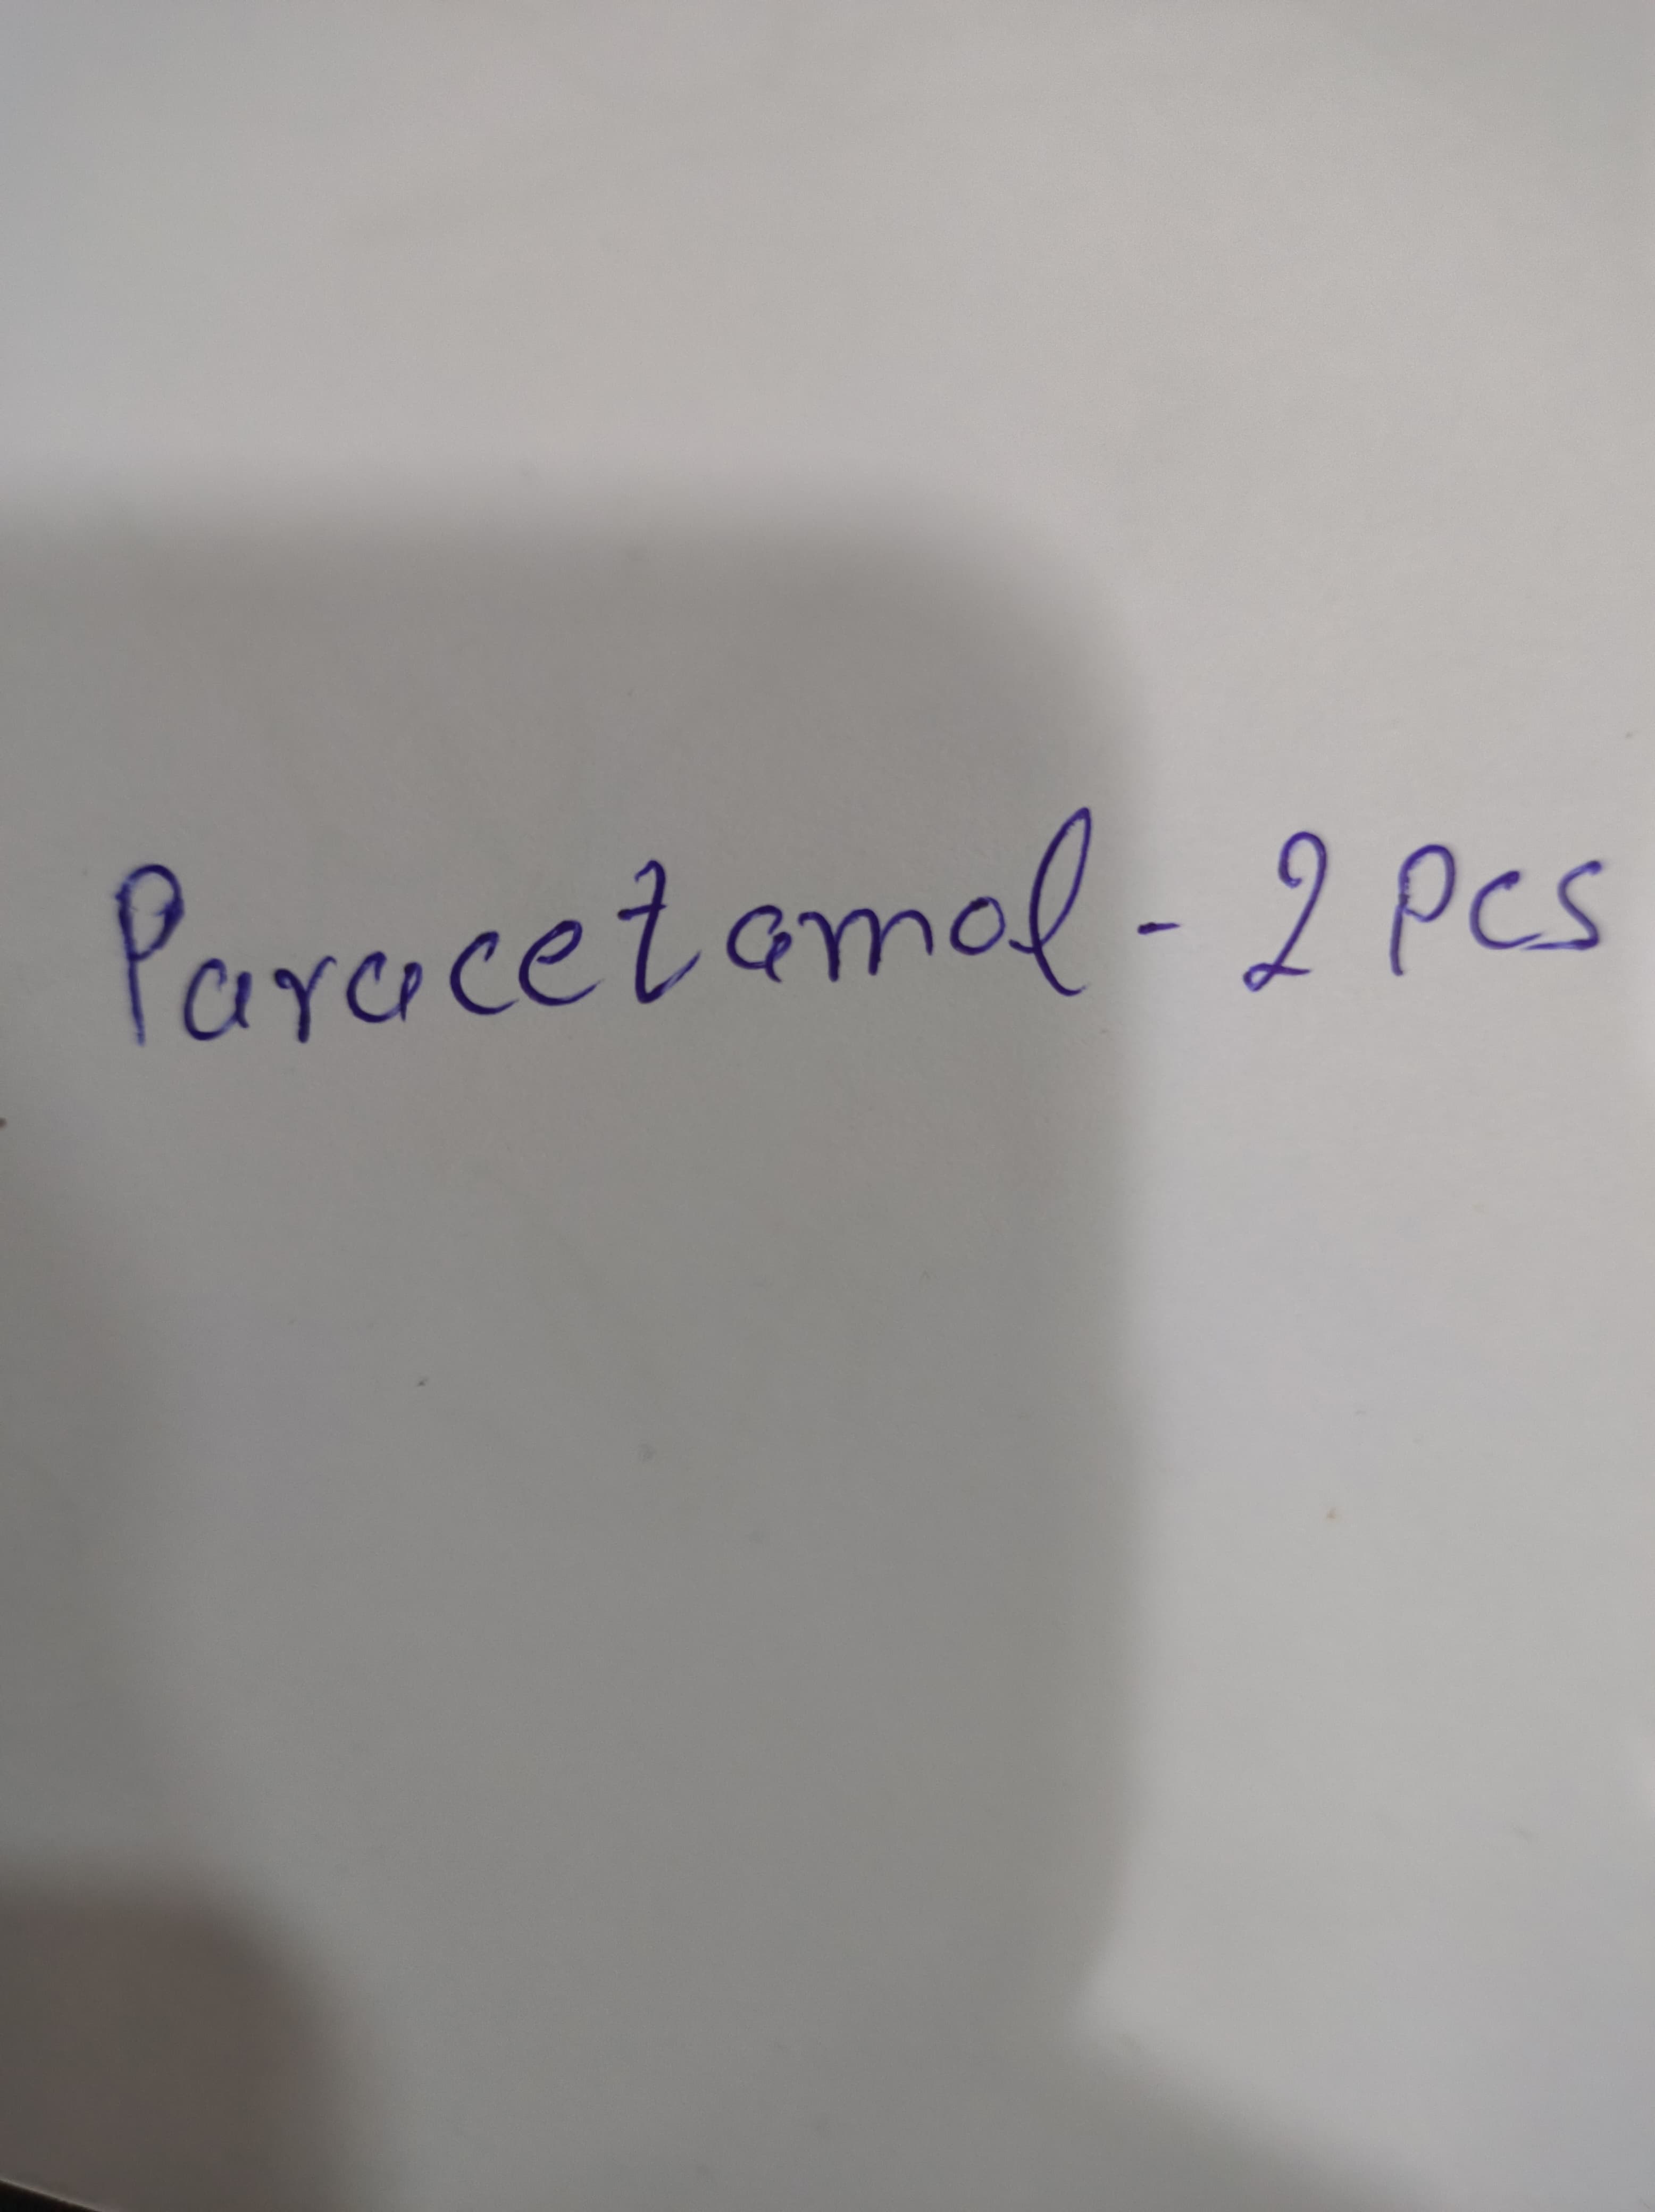 Paracetamol - 2 pcs